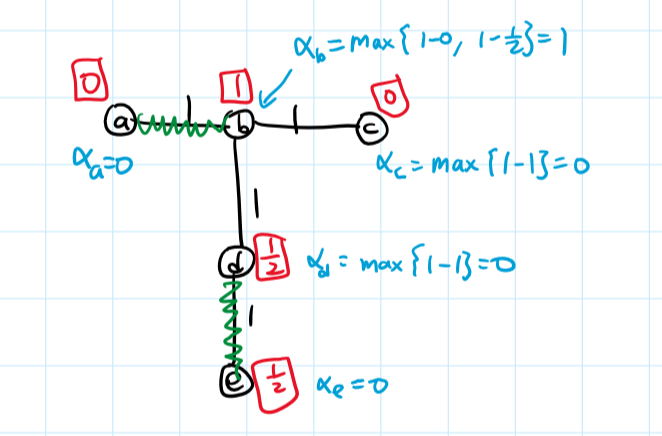 α_b = max{1-0, 1-½} = 1
0
1
0
a
1
b
1
c
α_a = 0
α_c = max{1-1} = 0
1
d
½
α_d = max{1-1} = 0
1
e
½
α_e = 0